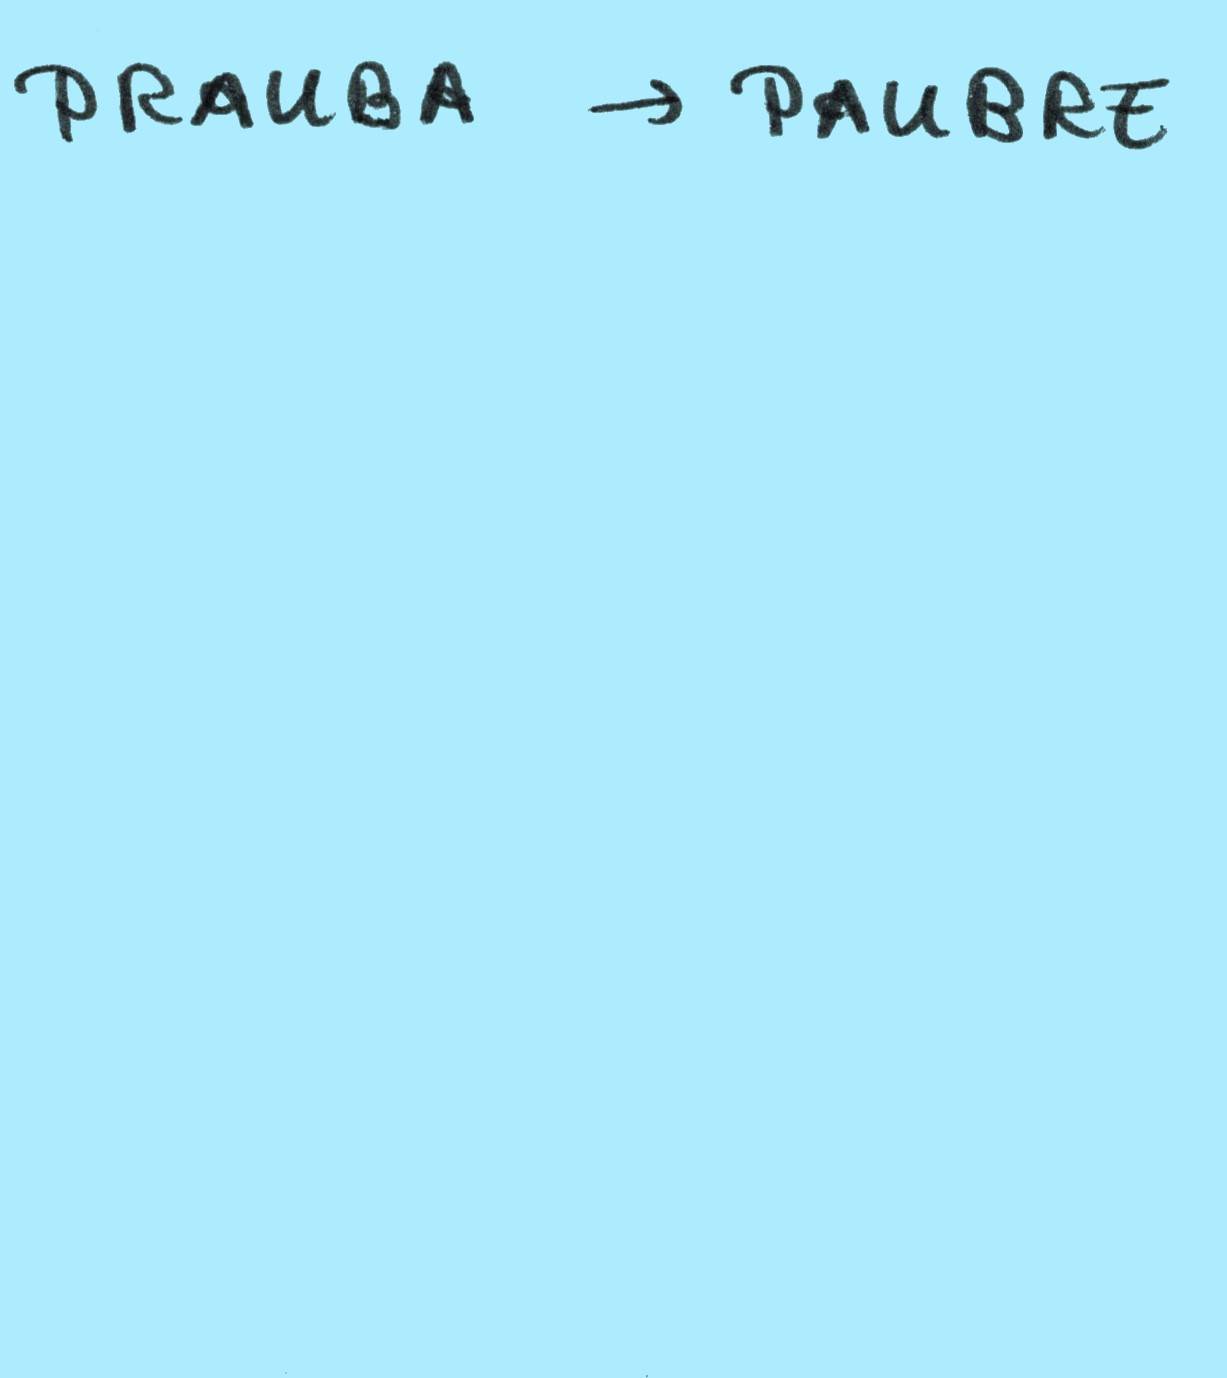 PRAUBA → PAUBRE